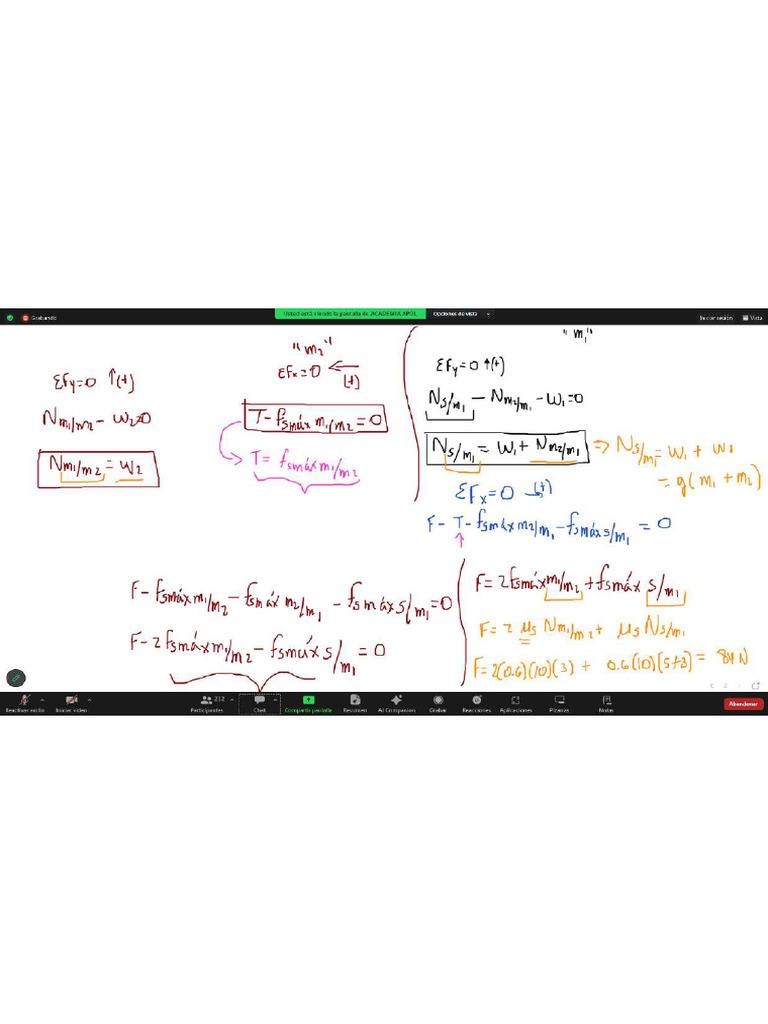 Grabando
Usted está viendo la pantalla de ACADEMIA APOL
Opciones de vista
Iniciar sesión
Vista
"m2"
ΣFx=0 (+)
ΣFy=0 ↑(+)
Nm1/m2 - W2=0
Nm1/m2 = W2
T - fsmáx m1/m2 = 0
T = fsmáx m1/m2
"m1"
ΣFy=0 ↑(+)
Ns/m1 - Nm2/m1 - W1=0
Ns/m1 = W1 + Nm2/m1 → Ns/m1 = W1 + W2
= g(m1 + m2)
ΣFx=0 (+)
F - T - fsmáx m2/m1 - fsmáx s/m1 = 0
F - fsmáx m1/m2 - fsmáx m2/m1 - fsmáx s/m1 = 0
F - 2fsmáx m1/m2 - fsmáx s/m1 = 0
F = 2fsmáx m1/m2 + fsmáx s/m1
F = 2 μs Nm1/m2 + μs Ns/m1
F = 2(0.6)(10)(3) + 0.6(10)(5+3) = 84 N
Reactivar audio
Iniciar video
Participantes
232
Chat
Compartir pantalla
Resumen
AI Companion
Grabar
Reacciones
Aplicaciones
Pizarras
Notas
Abandonar